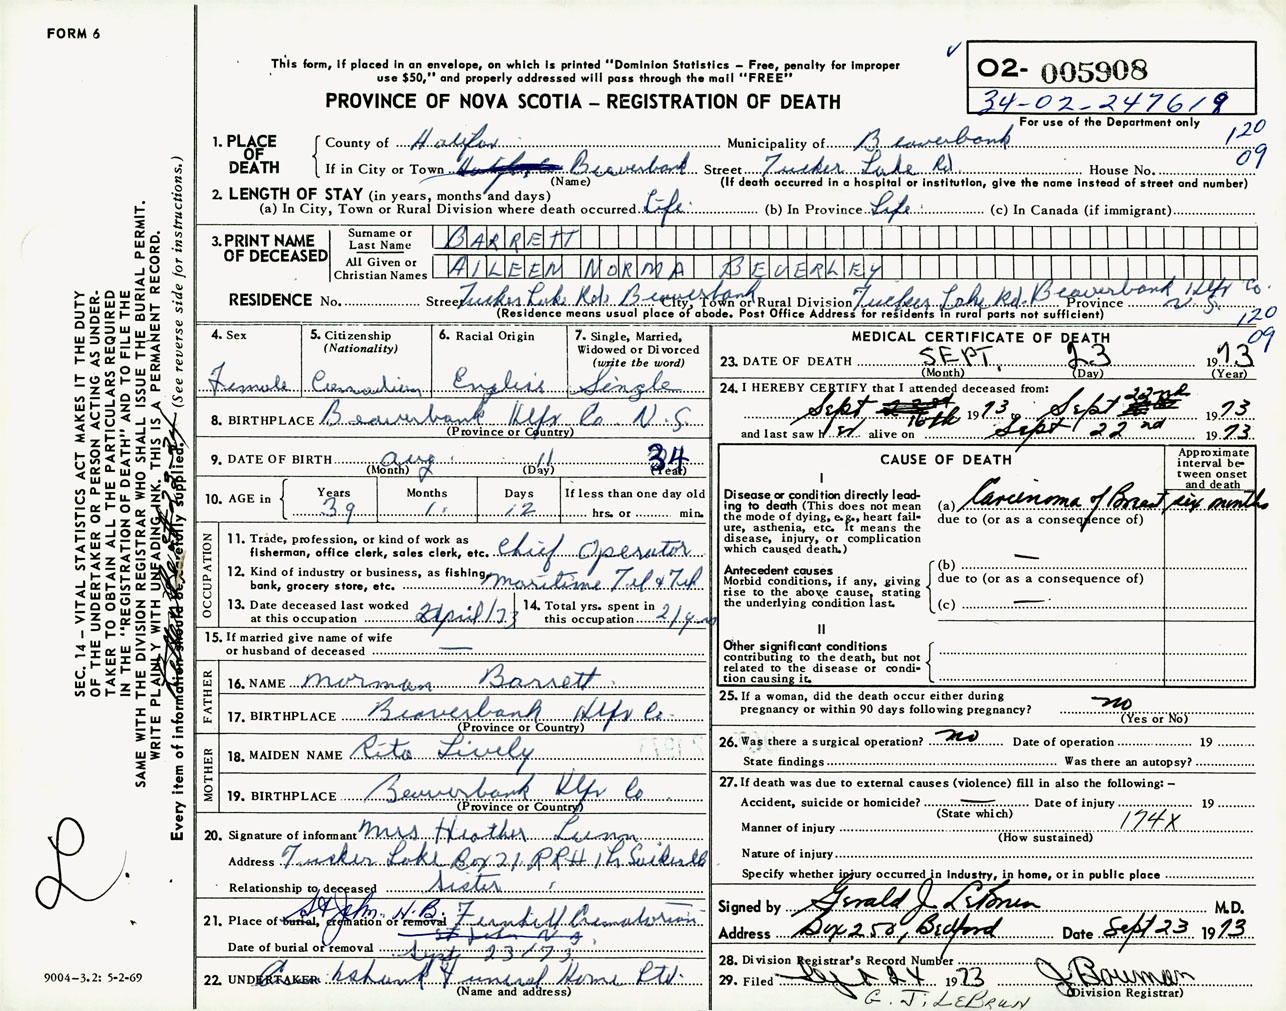 FORM 6
This form, if placed in an envelope, on which is printed "Dominion Statistics – Free, penalty for improper
use $50," and properly addressed will pass through the mail "FREE"
PROVINCE OF NOVA SCOTIA – REGISTRATION OF DEATH
O2- 005908
34-02-247619
For use of the Department only
120
09
1. PLACE OF DEATH
County of Halifax Municipality of Beaverbank
If in City or Town Beaverbank Street Tucker Lake Rd. House No.
(Name) (If death occurred in a hospital or institution, give the name instead of street and number)
2. LENGTH OF STAY (in years, months and days)
(a) In City, Town or Rural Division where death occurred Life (b) In Province Life (c) In Canada (if immigrant)
3. PRINT NAME OF DECEASED
Surname or Last Name BARRETT
All Given or Christian Names AILEEN NORMA BEVERLEY
RESIDENCE No. Street Tucker Lake Rd. Beaverbank City, Town or Rural Division Tucker Lake Rd. Beaverbank Hlfx Co. Province N.S.
(Residence means usual place of abode. Post Office Address for residents in rural parts not sufficient)
120
09
4. Sex
Female
5. Citizenship (Nationality)
Canadian
6. Racial Origin
English
7. Single, Married, Widowed or Divorced (write the word)
Single
8. BIRTHPLACE Beaverbank Hlfx Co N.S.
(Province or Country)
9. DATE OF BIRTH Aug. 11 34
(Month) (Day) (Year)
10. AGE in Years 39 Months 1 Days 12 If less than one day old hrs. or min.
OCCUPATION
11. Trade, profession, or kind of work as fisherman, office clerk, sales clerk, etc. Chief Operator
12. Kind of industry or business, as fishing, bank, grocery store, etc. Maritime Tel & Tel
13. Date deceased last worked at this occupation April/73
14. Total yrs. spent in this occupation 21 yrs
15. If married give name of wife or husband of deceased —
FATHER
16. NAME Norman Barrett
17. BIRTHPLACE Beaverbank Hlfx Co.
(Province or Country)
MOTHER
18. MAIDEN NAME Rita Lively
19. BIRTHPLACE Beaverbank Hlfx Co
(Province or Country)
20. Signature of informant Mrs Heather Lunn
Address Tucker Lake Box 21, RR#1 L. Sackville
Relationship to deceased Sister
21. Place of burial, cremation or removal St John N.B. Fernhill Crematorium
Date of burial or removal Sept 23/73
22. UNDERTAKER Cruikshank Funeral Home Ltd.
(Name and address)
MEDICAL CERTIFICATE OF DEATH
23. DATE OF DEATH SEPT. 23 1973
(Month) (Day) (Year)
24. I HEREBY CERTIFY that I attended deceased from:
Sept 16th 1973 to Sept 22nd 1973
and last saw her alive on Sept 22nd 1973
CAUSE OF DEATH
Approximate interval between onset and death
I
Disease or condition directly leading to death (This does not mean the mode of dying, e.g., heart failure, asthenia, etc. It means the disease, injury, or complication which caused death.)
(a) Carcinoma of Breast six months
due to (or as a consequence of)
Antecedent causes
Morbid conditions, if any, giving rise to the above cause, stating the underlying condition last.
(b) —
due to (or as a consequence of)
(c) —
II
Other significant conditions
contributing to the death, but not related to the disease or condition causing it.
25. If a woman, did the death occur either during pregnancy or within 90 days following pregnancy? no
(Yes or No)
26. Was there a surgical operation? no Date of operation 19
State findings Was there an autopsy?
27. If death was due to external causes (violence) fill in also the following: –
Accident, suicide or homicide? — Date of injury 19
(State which)
Manner of injury 174X
(How sustained)
Nature of injury
Specify whether injury occurred in industry, in home, or in public place
Signed by Gerald J LeBrun M.D.
Address Box 250, Bedford Date Sept 23 1973
28. Division Registrar's Record Number
29. Filed Sept 24 1973 J Bowman
(Division Registrar)
G. J. LEBRUN
SEC. 14 – VITAL STATISTICS ACT MAKES IT THE DUTY
OF THE UNDERTAKER OR PERSON ACTING AS UNDER-
TAKER TO OBTAIN ALL THE PARTICULARS REQUIRED
IN THE "REGISTRATION OF DEATH" AND TO FILE THE
SAME WITH THE DIVISION REGISTRAR WHO SHALL ISSUE THE BURIAL PERMIT.
WRITE PLAINLY WITH UNFADING INK. THIS IS A PERMANENT RECORD.
Every item of information should be carefully supplied. (See reverse side for instructions.)
9004-3.2: 5-2-69